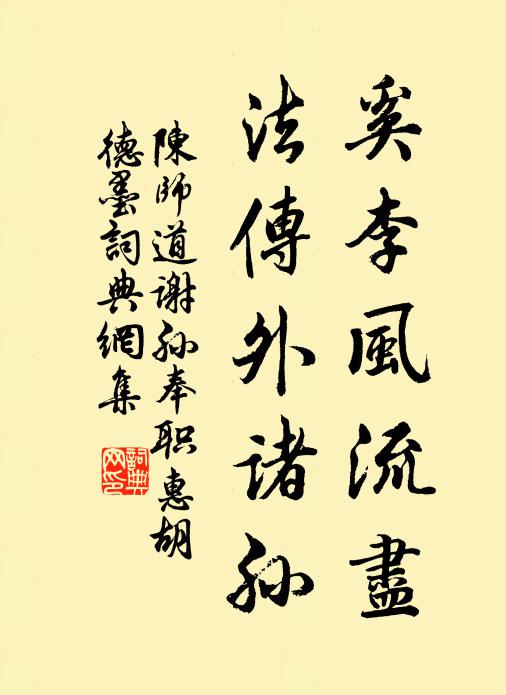 奚李風流盡
法傳外諸孫
陳師道謝孙奉职惠胡
德墨詞典網集
詞典网印